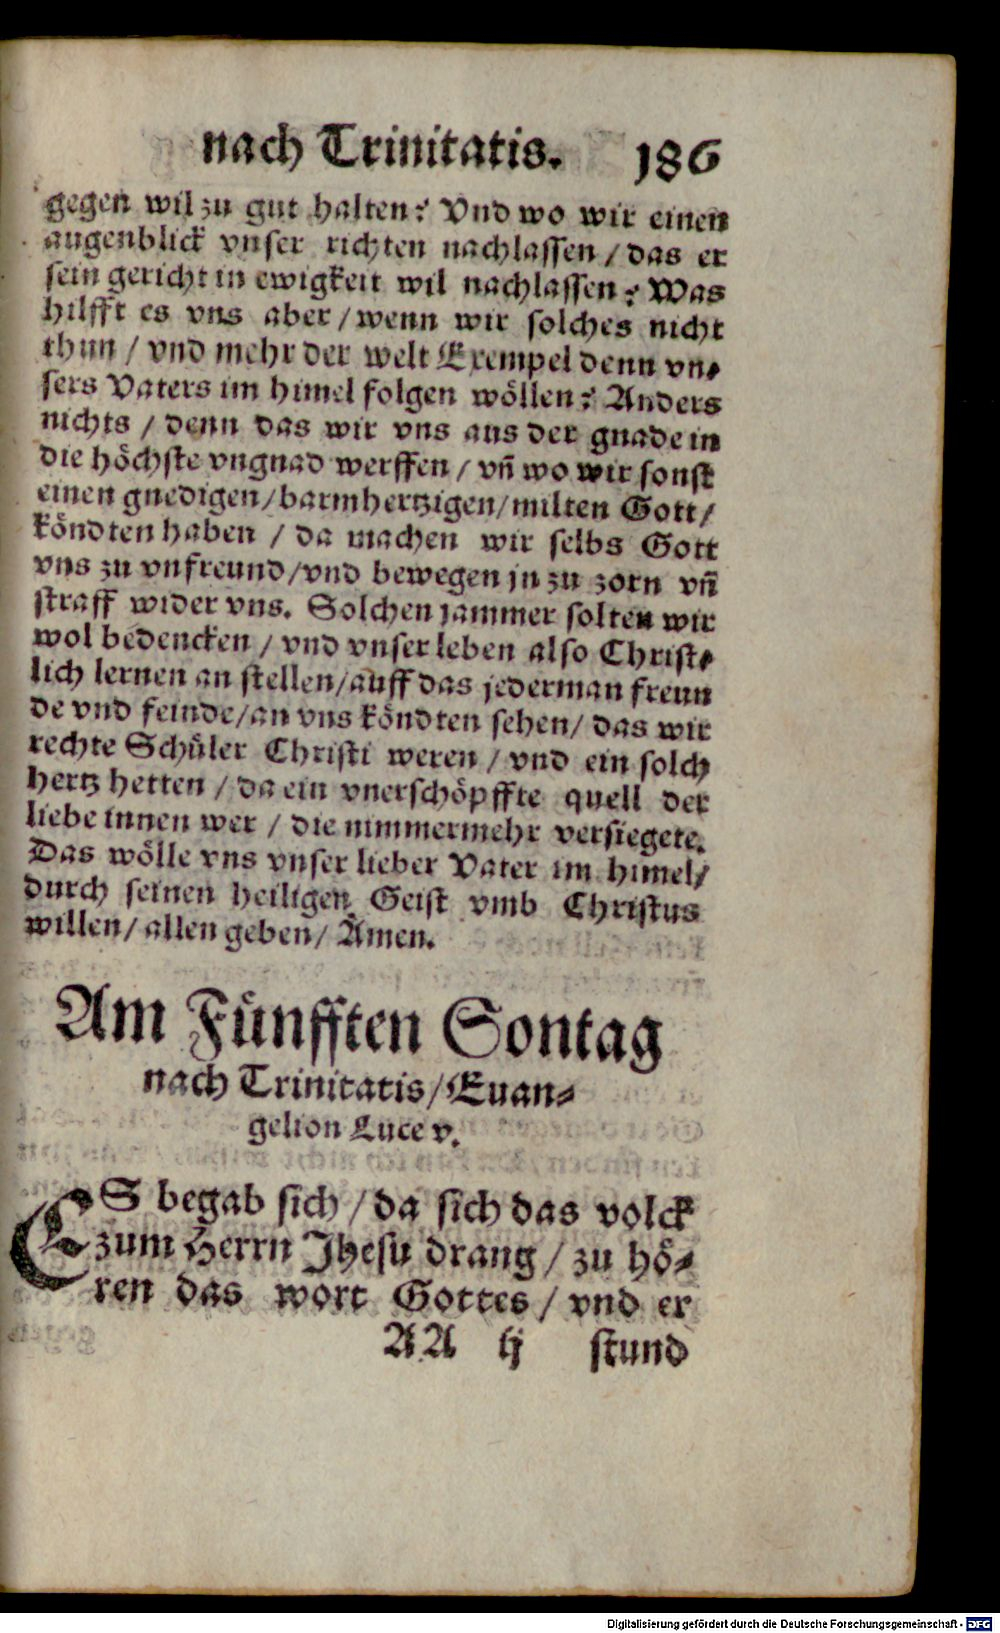 nach Trinitatis. 186
gegen wil zu gut halten? Vnd wo wir einen
augenblick vnser richten nachlassen / das er
sein gericht in ewigkeit wil nachlassen? Was
hilfft es vns aber / wenn wir solches nicht
thun / vnd mehr der welt Exempel denn vn-
sers Vaters im himel folgen wöllen? Anders
nichts / denn das wir vns aus der gnade in
die höchste vngnad werffen / vñ wo wir sonst
einen gnedigen / barmhertzigen / milten Gott /
köndten haben / da machen wir selbs Gott
vns zu vnfreund / vnd bewegen jn zu zorn vñ
straff wider vns. Solchen jammer solten wir
wol bedencken / vnd vnser leben also Christ-
lich lernen an stellen / auff das jederman freun
de vnd feinde / an vns köndten sehen / das wir
rechte Schüler Christi weren / vnd ein solch
hertz hetten / da ein vnerschöpffte quell der
liebe innen wer / die nimmermehr versiegete.
Das wölle vns vnser lieber Vater im himel /
durch seinen heiligen Geist vmb Christus
willen / allen geben / Amen.
Am Fünfften Sontag
nach Trinitatis / Euan-
gelion Luce v.
ES begab sich / da sich das volck
zum Herrn Jhesu drang / zu hö-
ren das wort Gottes / vnd er
AA ij stund
Digitalisierung gefördert durch die Deutsche Forschungsgemeinschaft - DFG